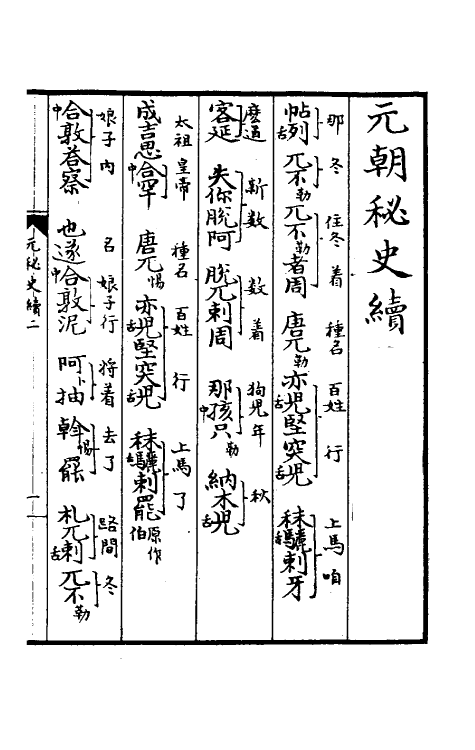 元朝秘史續
那 冬 住冬着 種名 百姓 行 上馬咱
帖舌列 兀不勒 兀不勒者周 唐兀勒 亦舌児堅突舌児 秣舌驎剌牙
麽道 新數 數着 狗児年 秋
客延 失你脫阿 脫兀剌周 那中孩只勒 納木舌児
太祖皇帝 種名 百姓 行 上馬了
成吉思中合罕 唐兀惕 亦舌児堅突舌児 秣舌驎剌罷 原作伯
娘子內 名 娘子行 將着 去了 路間 冬
中合敦荅察 也遂中合敦泥 阿卜抽 斡惕罷 札兀舌剌 兀不勒
元秘史續二 一